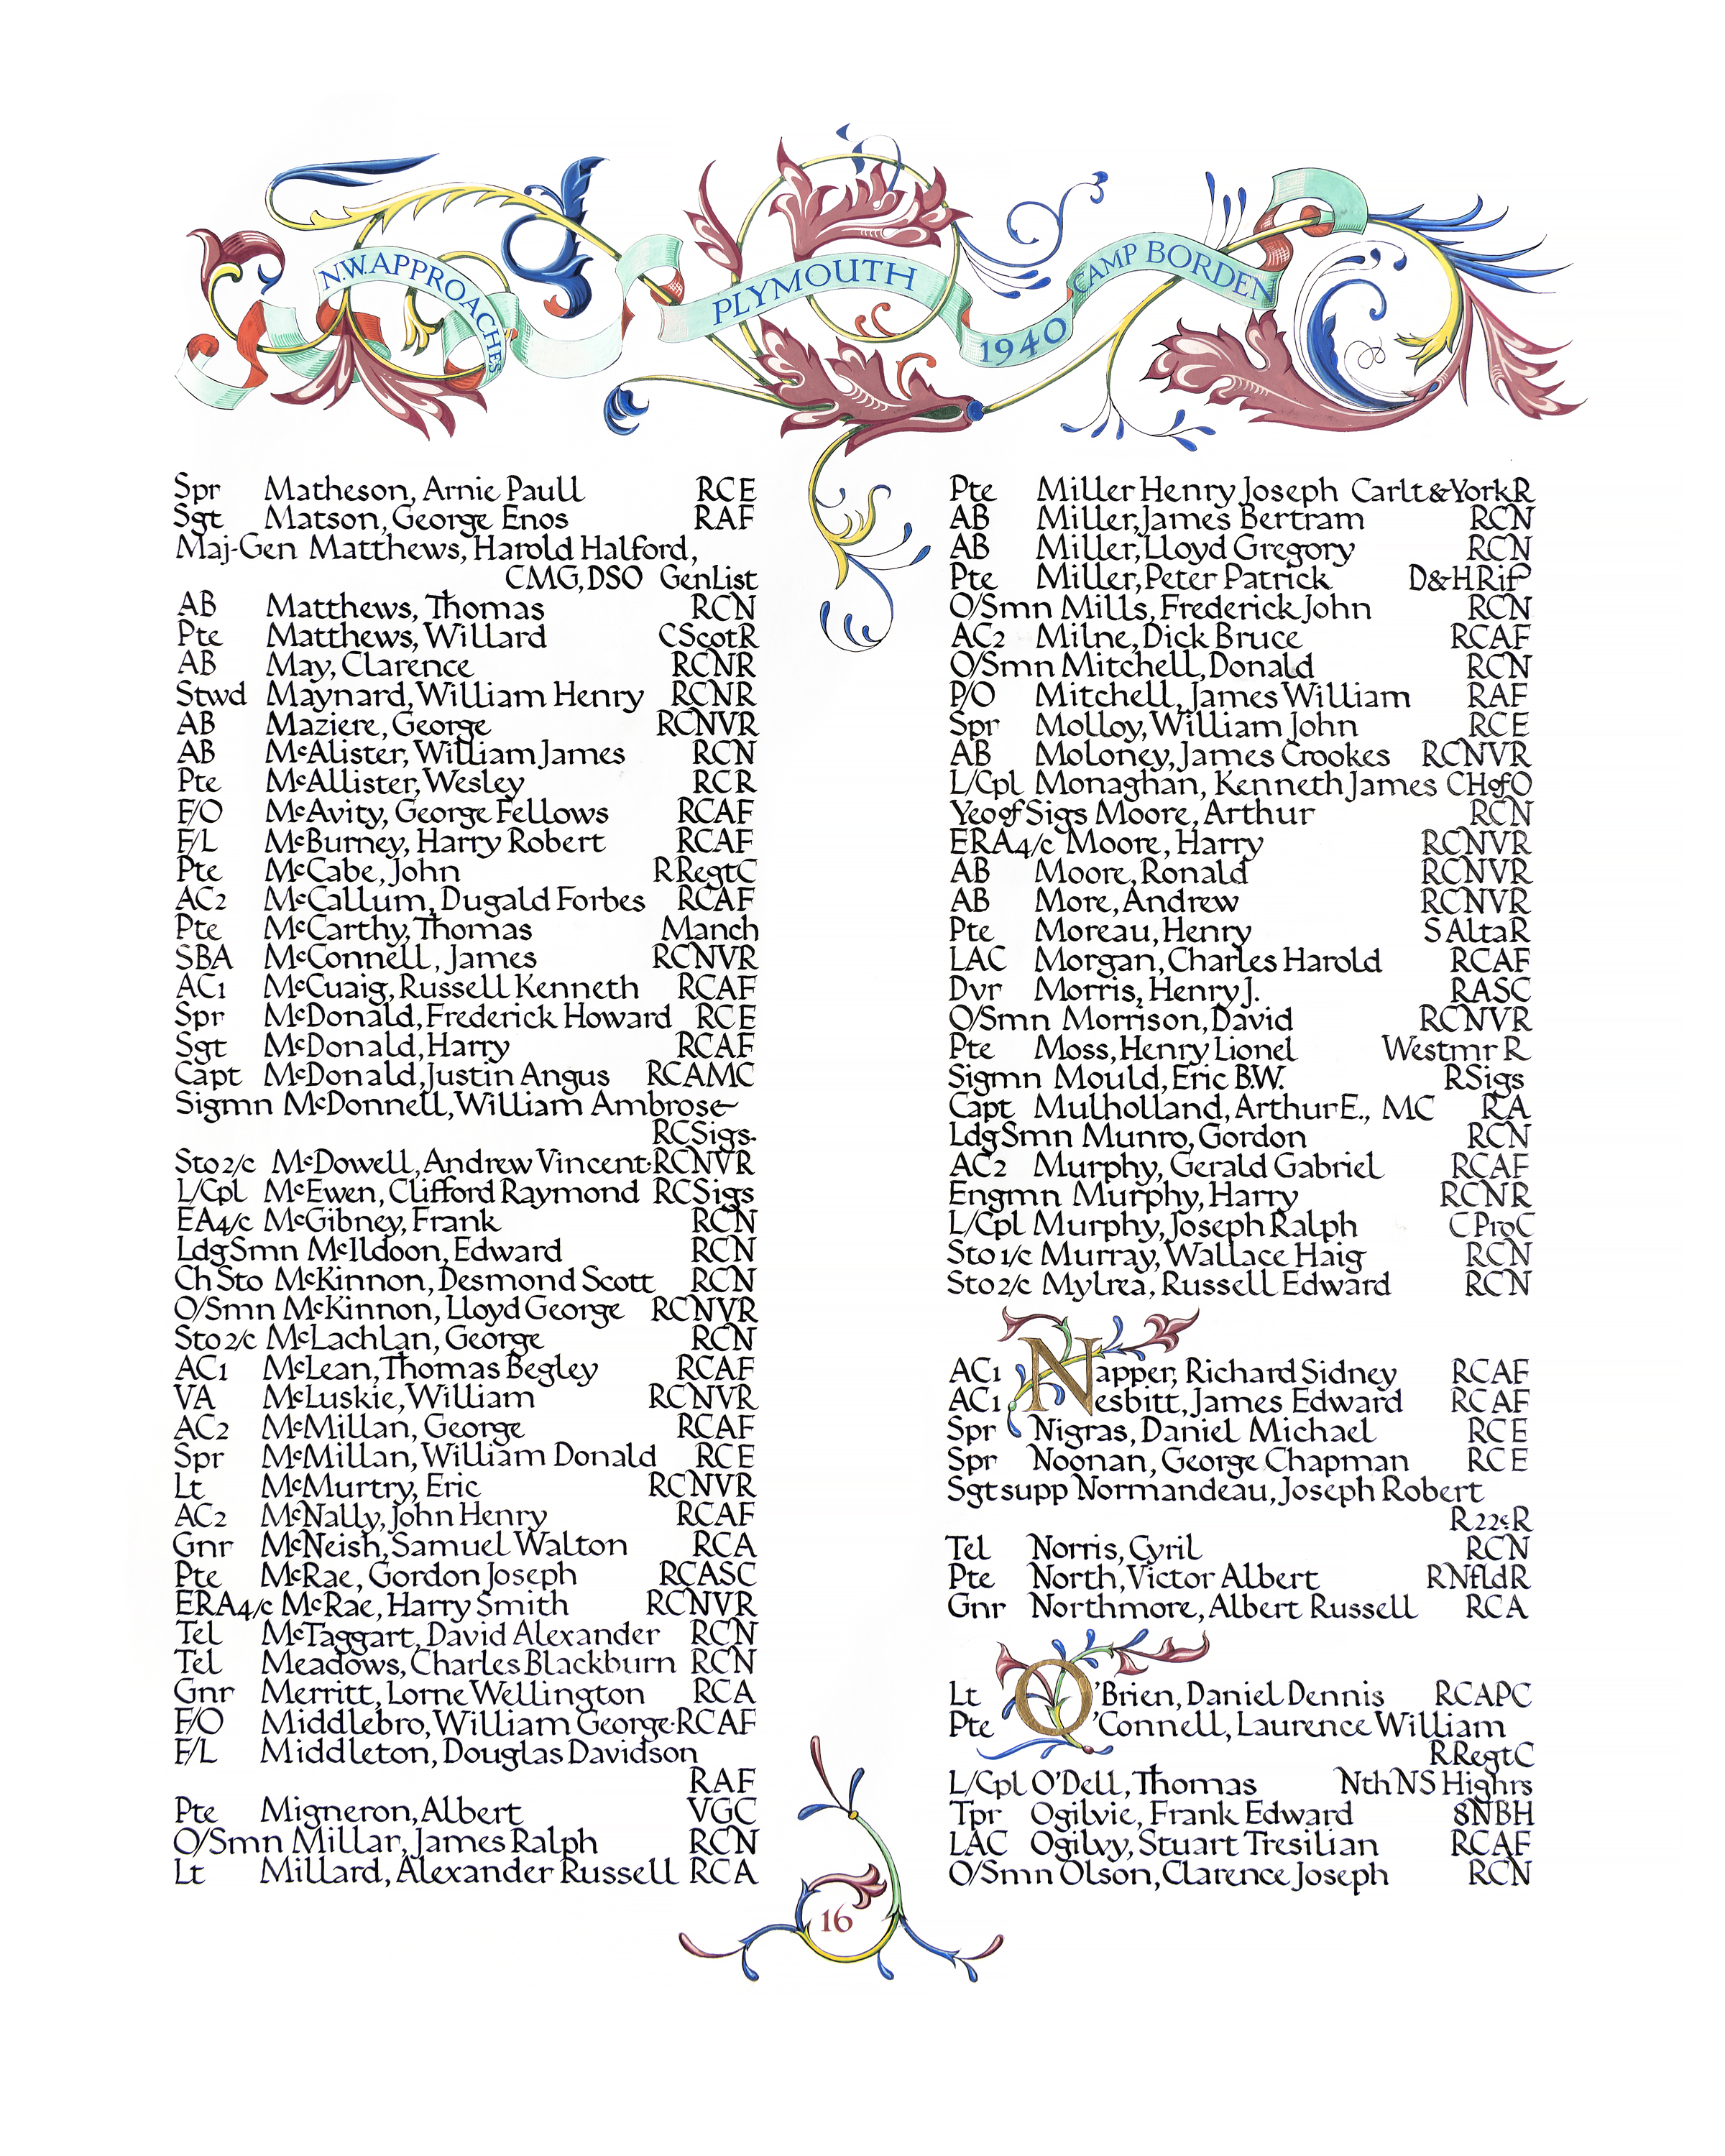 N.W. APPROACHES
PLYMOUTH
1940
CAMP BORDEN
Spr Matheson, Arnie Paull RCE
Sgt Matson, George Enos RAF
Maj-Gen Matthews, Harold Halford,
CMG, DSO GenList
AB Matthews, Thomas RCN
Pte Matthews, Willard CScotR
AB May, Clarence RCNR
Stwd Maynard, William Henry RCNR
AB Maziere, George RCNVR
AB McAlister, William James RCN
Pte McAllister, Wesley RCR
F/O McAvity, George Fellows RCAF
F/L McBurney, Harry Robert RCAF
Pte McCabe, John RRegtC
AC2 McCallum, Dugald Forbes RCAF
Pte McCarthy, Thomas Manch
SBA McConnell, James RCNVR
AC1 McCuaig, Russell Kenneth RCAF
Spr McDonald, Frederick Howard RCE
Sgt McDonald, Harry RCAF
Capt McDonald, Justin Angus RCAMC
Sigmn McDonnell, William Ambrose
RCSigs.
Sto2/c McDowell, Andrew Vincent·RCNVR
L/Cpl McEwen, Clifford Raymond RCSigs
EA4/c McGibney, Frank RCN
LdgSmn McIldoon, Edward RCN
Ch Sto McKinnon, Desmond Scott RCN
O/Smn McKinnon, Lloyd George RCNVR
Sto2/c McLachlan, George RCN
AC1 McLean, Thomas Begley RCAF
VA McLuskie, William RCNVR
AC2 McMillan, George RCAF
Spr McMillan, William Donald RCE
Lt McMurtry, Eric RCNVR
AC2 McNally, John Henry RCAF
Gnr McNeish, Samuel Walton RCA
Pte McRae, Gordon Joseph RCASC
ERA4/c McRae, Harry Smith RCNVR
Tel McTaggart, David Alexander RCN
Tel Meadows, Charles Blackburn RCN
Gnr Merritt, Lorne Wellington RCA
F/O Middlebro, William George·RCAF
F/L Middleton, Douglas Davidson
RAF
Pte Migneron, Albert VGC
O/Smn Millar, James Ralph RCN
Lt Millard, Alexander Russell RCA
Pte Miller Henry Joseph Carlt&YorkR
AB Miller, James Bertram RCN
AB Miller, Lloyd Gregory RCN
Pte Miller, Peter Patrick D&HRif
O/Smn Mills, Frederick John RCN
AC2 Milne, Dick Bruce RCAF
O/Smn Mitchell, Donald RCN
P/O Mitchell, James William RAF
Spr Molloy, William John RCE
AB Moloney, James Crookes RCNVR
L/Cpl Monaghan, Kenneth James CHofO
Yeo of Sigs Moore, Arthur RCN
ERA4/c Moore, Harry RCNVR
AB Moore, Ronald RCNVR
AB More, Andrew RCNVR
Pte Moreau, Henry S AltaR
LAC Morgan, Charles Harold RCAF
Dvr Morris, Henry J. RASC
O/Smn Morrison, David RCNVR
Pte Moss, Henry Lionel Westmr R
Sigmn Mould, Eric B.W. RSigs
Capt Mulholland, Arthur E., MC RA
LdgSmn Munro, Gordon RCN
AC2 Murphy, Gerald Gabriel RCAF
Engmn Murphy, Harry RCNR
L/Cpl Murphy, Joseph Ralph C ProC
Sto1/c Murray, Wallace Haig RCN
Sto2/c Mylrea, Russell Edward RCN
AC1 Napper, Richard Sidney RCAF
AC1 Nesbitt, James Edward RCAF
Spr Nigras, Daniel Michael RCE
Spr Noonan, George Chapman RCE
Sgt supp Normandeau, Joseph Robert
R22eR
Tel Norris, Cyril RCN
Pte North, Victor Albert RNfldR
Gnr Northmore, Albert Russell RCA
Lt O'Brien, Daniel Dennis RCAPC
Pte O'Connell, Laurence William
RRegtC
L/Cpl O'Dell, Thomas NthNS Highrs
Tpr Ogilvie, Frank Edward 8NBH
LAC Ogilvy, Stuart Tresilian RCAF
O/Smn Olson, Clarence Joseph RCN
16